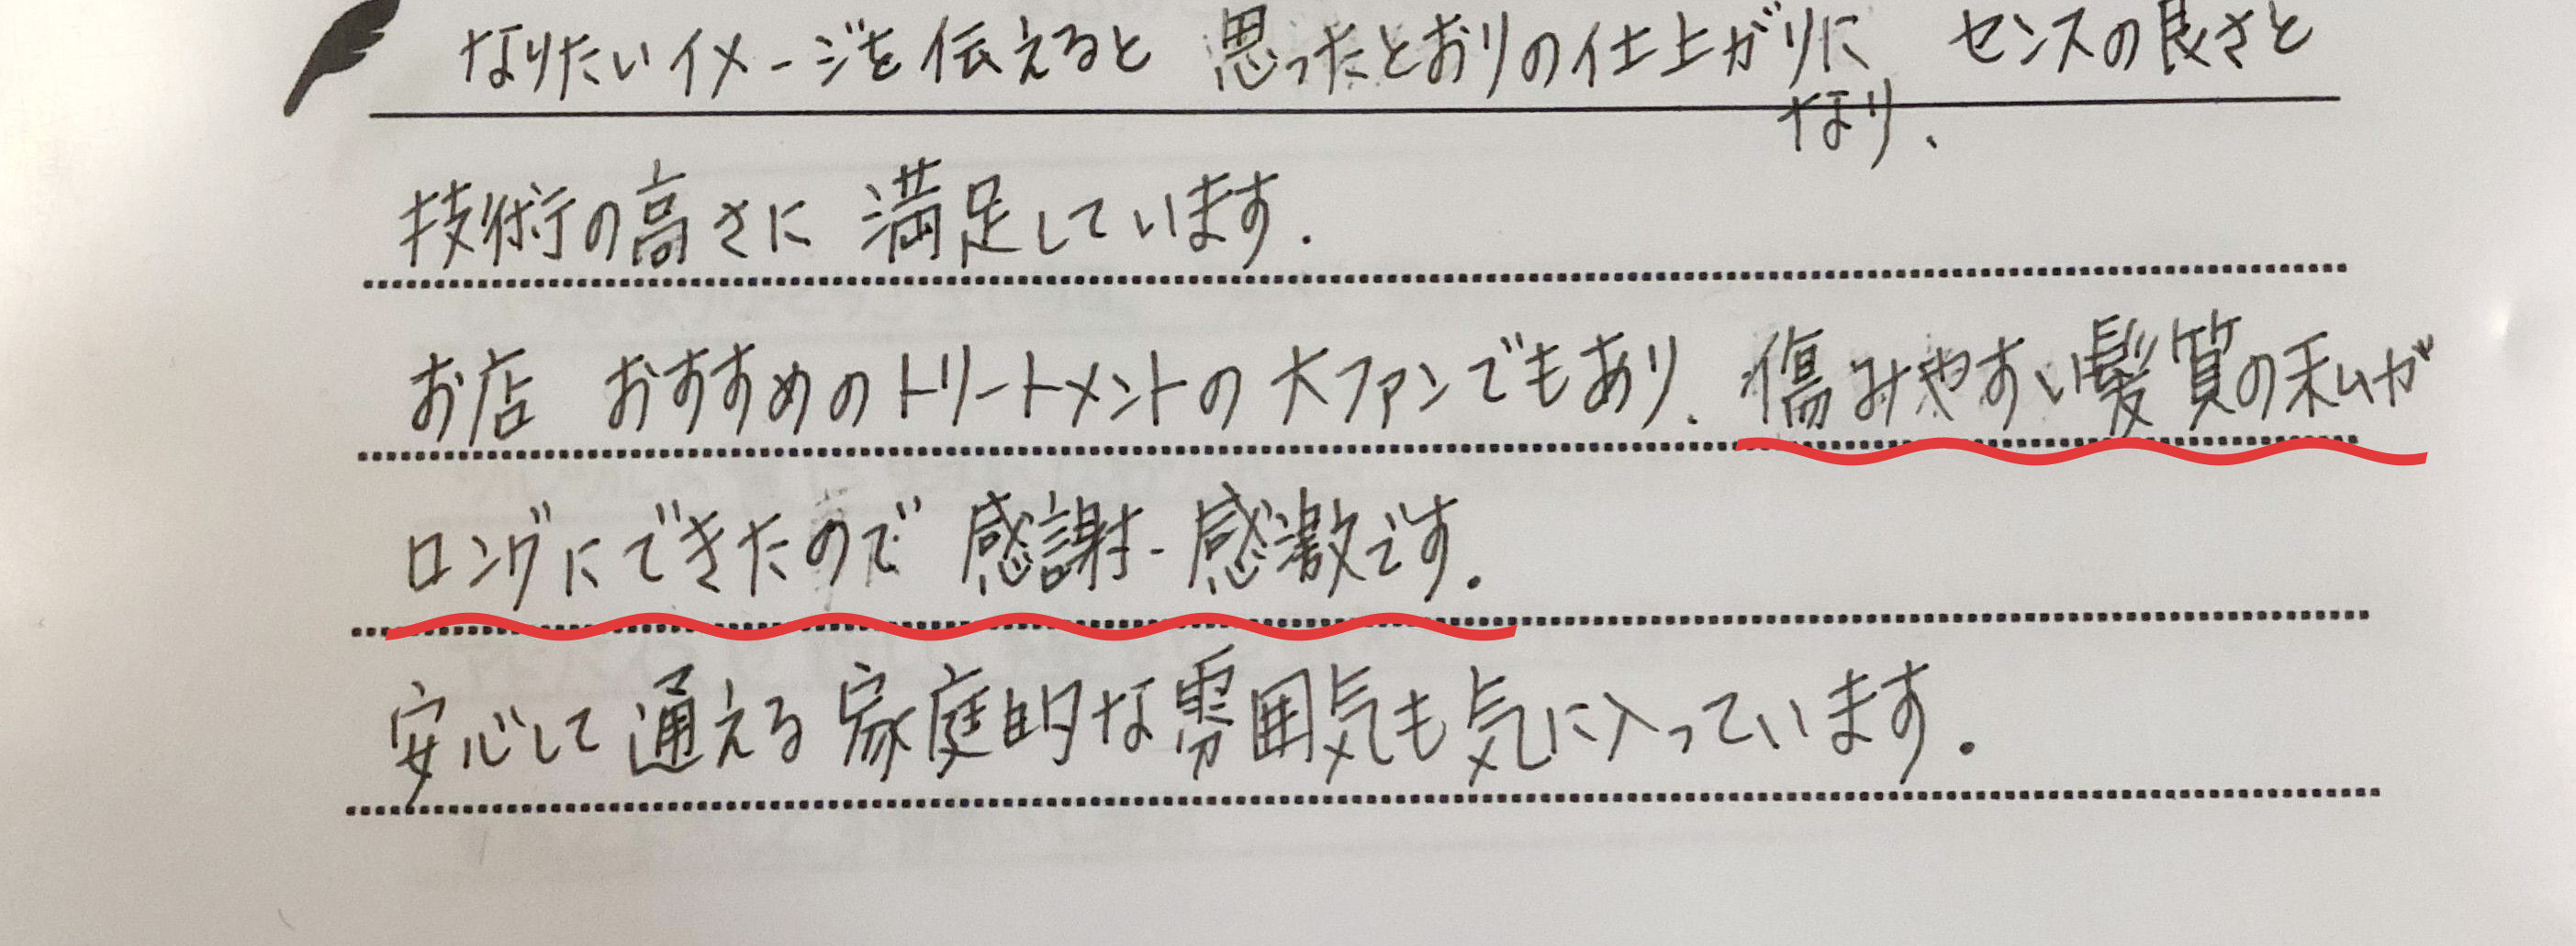 なりたいイメージを伝えると 思ったとおりの仕上がりに センスの良さと
なり、
技術の高さに 満足しています.
お店 おすすめのトリートメントの大ファンでもあり、傷みやすい髪質の私が
ロングにできたので 感謝-感激です.
安心して通える家庭的な雰囲気も気に入っています.